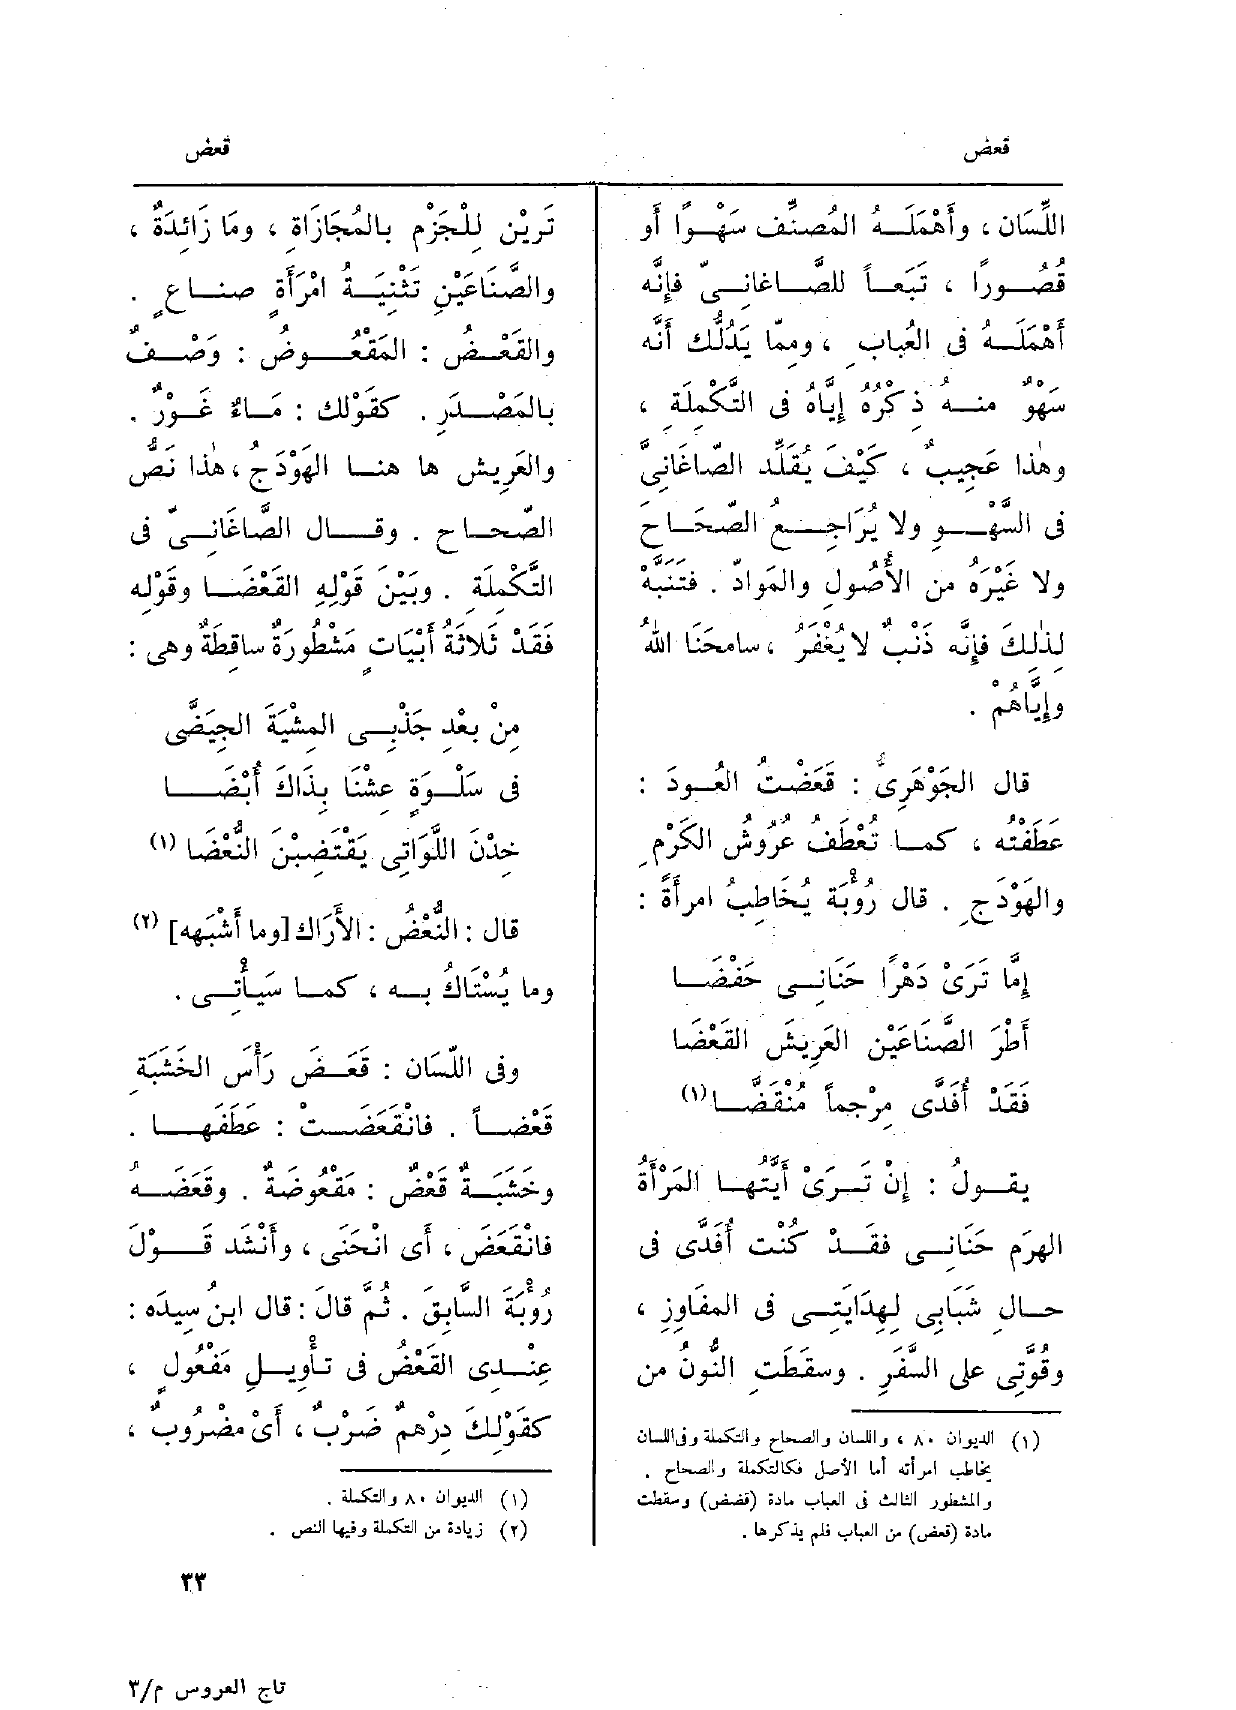 قعض
قعض
اللِّسَان ، وأَهْمَلَهُ المُصَنِّف سَهْوًا أَو
قُصُورًا ، تَبَعاً للصَّاغانِيّ فإِنَّه
أَهْمَلَهُ فى العُبابِ ، ومِمّا يَدُلُّك أَنَّه
سَهْوٌ منه ذِكْرُهُ إِيَّاهُ فى التَّكْمِلَة ،
وهٰذا عَجِيبٌ ، كَيْفَ يُقَلِّد الصّاغانِيَّ
فى السَّهْوِ ولا يُرَاجِعُ الصّحَاحَ
ولا غَيْرَه من الأُصُولِ والمَوادّ . فتَنَبَّهْ
لِذٰلِكَ فإِنَّه ذَنْبٌ لا يُغْفَرُ ، سامَحَنَا اللهُ
وإِيَّاهُمْ .
قال الجَوْهَرِىُّ : قَعَضْتُ العُودَ :
عَطَفْتُه ، كما تُعْطَفُ عُرُوشُ الكَرْمِ
والهَوْدَجِ . قال رُؤْبَةُ يُخَاطِبُ امرأَةً :
إِمَّا تَرَىْ دَهْرًا حَنَانِى حَفْضَا
أَطْرَ الصَّنَاعَيْنِ العَرِيشَ القَعْضَا
فَقَدْ أُفَدَّى مِرْجَماً مُنْقَضَّا(١)
يقولُ : إِنْ تَرَىْ أَيَّتُهَا المَرْأَةُ
الهَرَمَ حَنَانِى فقد كُنْتُ أُفَدَّى فى
حالِ شَبَابِى لِهِدَايَتِى فى المَفَاوِزِ ،
وقُوَّتِى على السَّفَرِ . وسَقَطَتِ النُّونُ من
(١) الديوان ٨٠ ، واللسان والصحاح والتكملة وفى اللسان
يخاطب امرأته أما الأصل فكالتكملة والصحاح .
والمشطور الثالث فى العباب مادة (قضض) وسقطت
مادة (قعض) من العباب فلم يذكرها .
تَرَيْنَ لِلْجَزْمِ بالمُجَازَاةِ ، ومَا زَائدَةٌ ،
والصَّنَاعَيْنِ تَثْنِيَةُ امْرَأَةٍ صَنَاعٍ .
والقَعْضُ : المَقْعُوضُ : وَصْفٌ
بالمَصْدَرِ . كقَوْلك : مَاءٌ غَوْرٌ .
والعَرِيشُ ها هنا الهَوْدَجُ ، هٰذا نَصُّ
الصّحاح . وقال الصَّاغَانِىّ فى
التَّكْمِلَة . وبَيْنَ قَوْلِهِ القَعْضَا وقَوْلِه
فَقَدْ ثَلاثَةُ أَبْيَاتٍ مَشْطُورَةٌ ساقِطَةٌ وهى :
مِنْ بعْدِ جَذْبِى المِشْيَةَ الجِيَضَّى
فى سَلْوَةٍ عِشْنَا بِذَاكَ أُبْضَا
خِدْنَ اللَّوَاتِى يَقْتَضِبْنَ النُّعْضَا (١)
قال : النُّعْضُ : الأَرَاك [وما أَشْبَهه] (٢)
وما يُسْتَاكُ به ، كما سَيَأْتِى .
وفى اللّسَان : قَعَضَ رَأْسَ الخَشَبَة
قَعْضاً . فانْقَعَضَتْ : عَطَفَها .
وخَشَبَةٌ قَعْضٌ : مَقْعُوضَةٌ . وقَعَضَهُ
فانْقَعَضَ ، أَى انْحَنَى ، وأَنْشَد قَوْلَ
رُؤْبَةَ السَّابِقَ . ثُمَّ قالَ : قال ابنُ سِيدَه :
عِنْدِى القَعْضُ فى تَأْوِيلِ مَفْعُولٍ ،
كقَوْلِكَ دِرْهَمٌ ضَرْبٌ ، أَىْ مضْرُوبٌ ،
(١) الديوان ٨٠ والتكملة .
(٢) زيادة من التكملة وفيها النص .
٣٣
تاج العروس م/٣